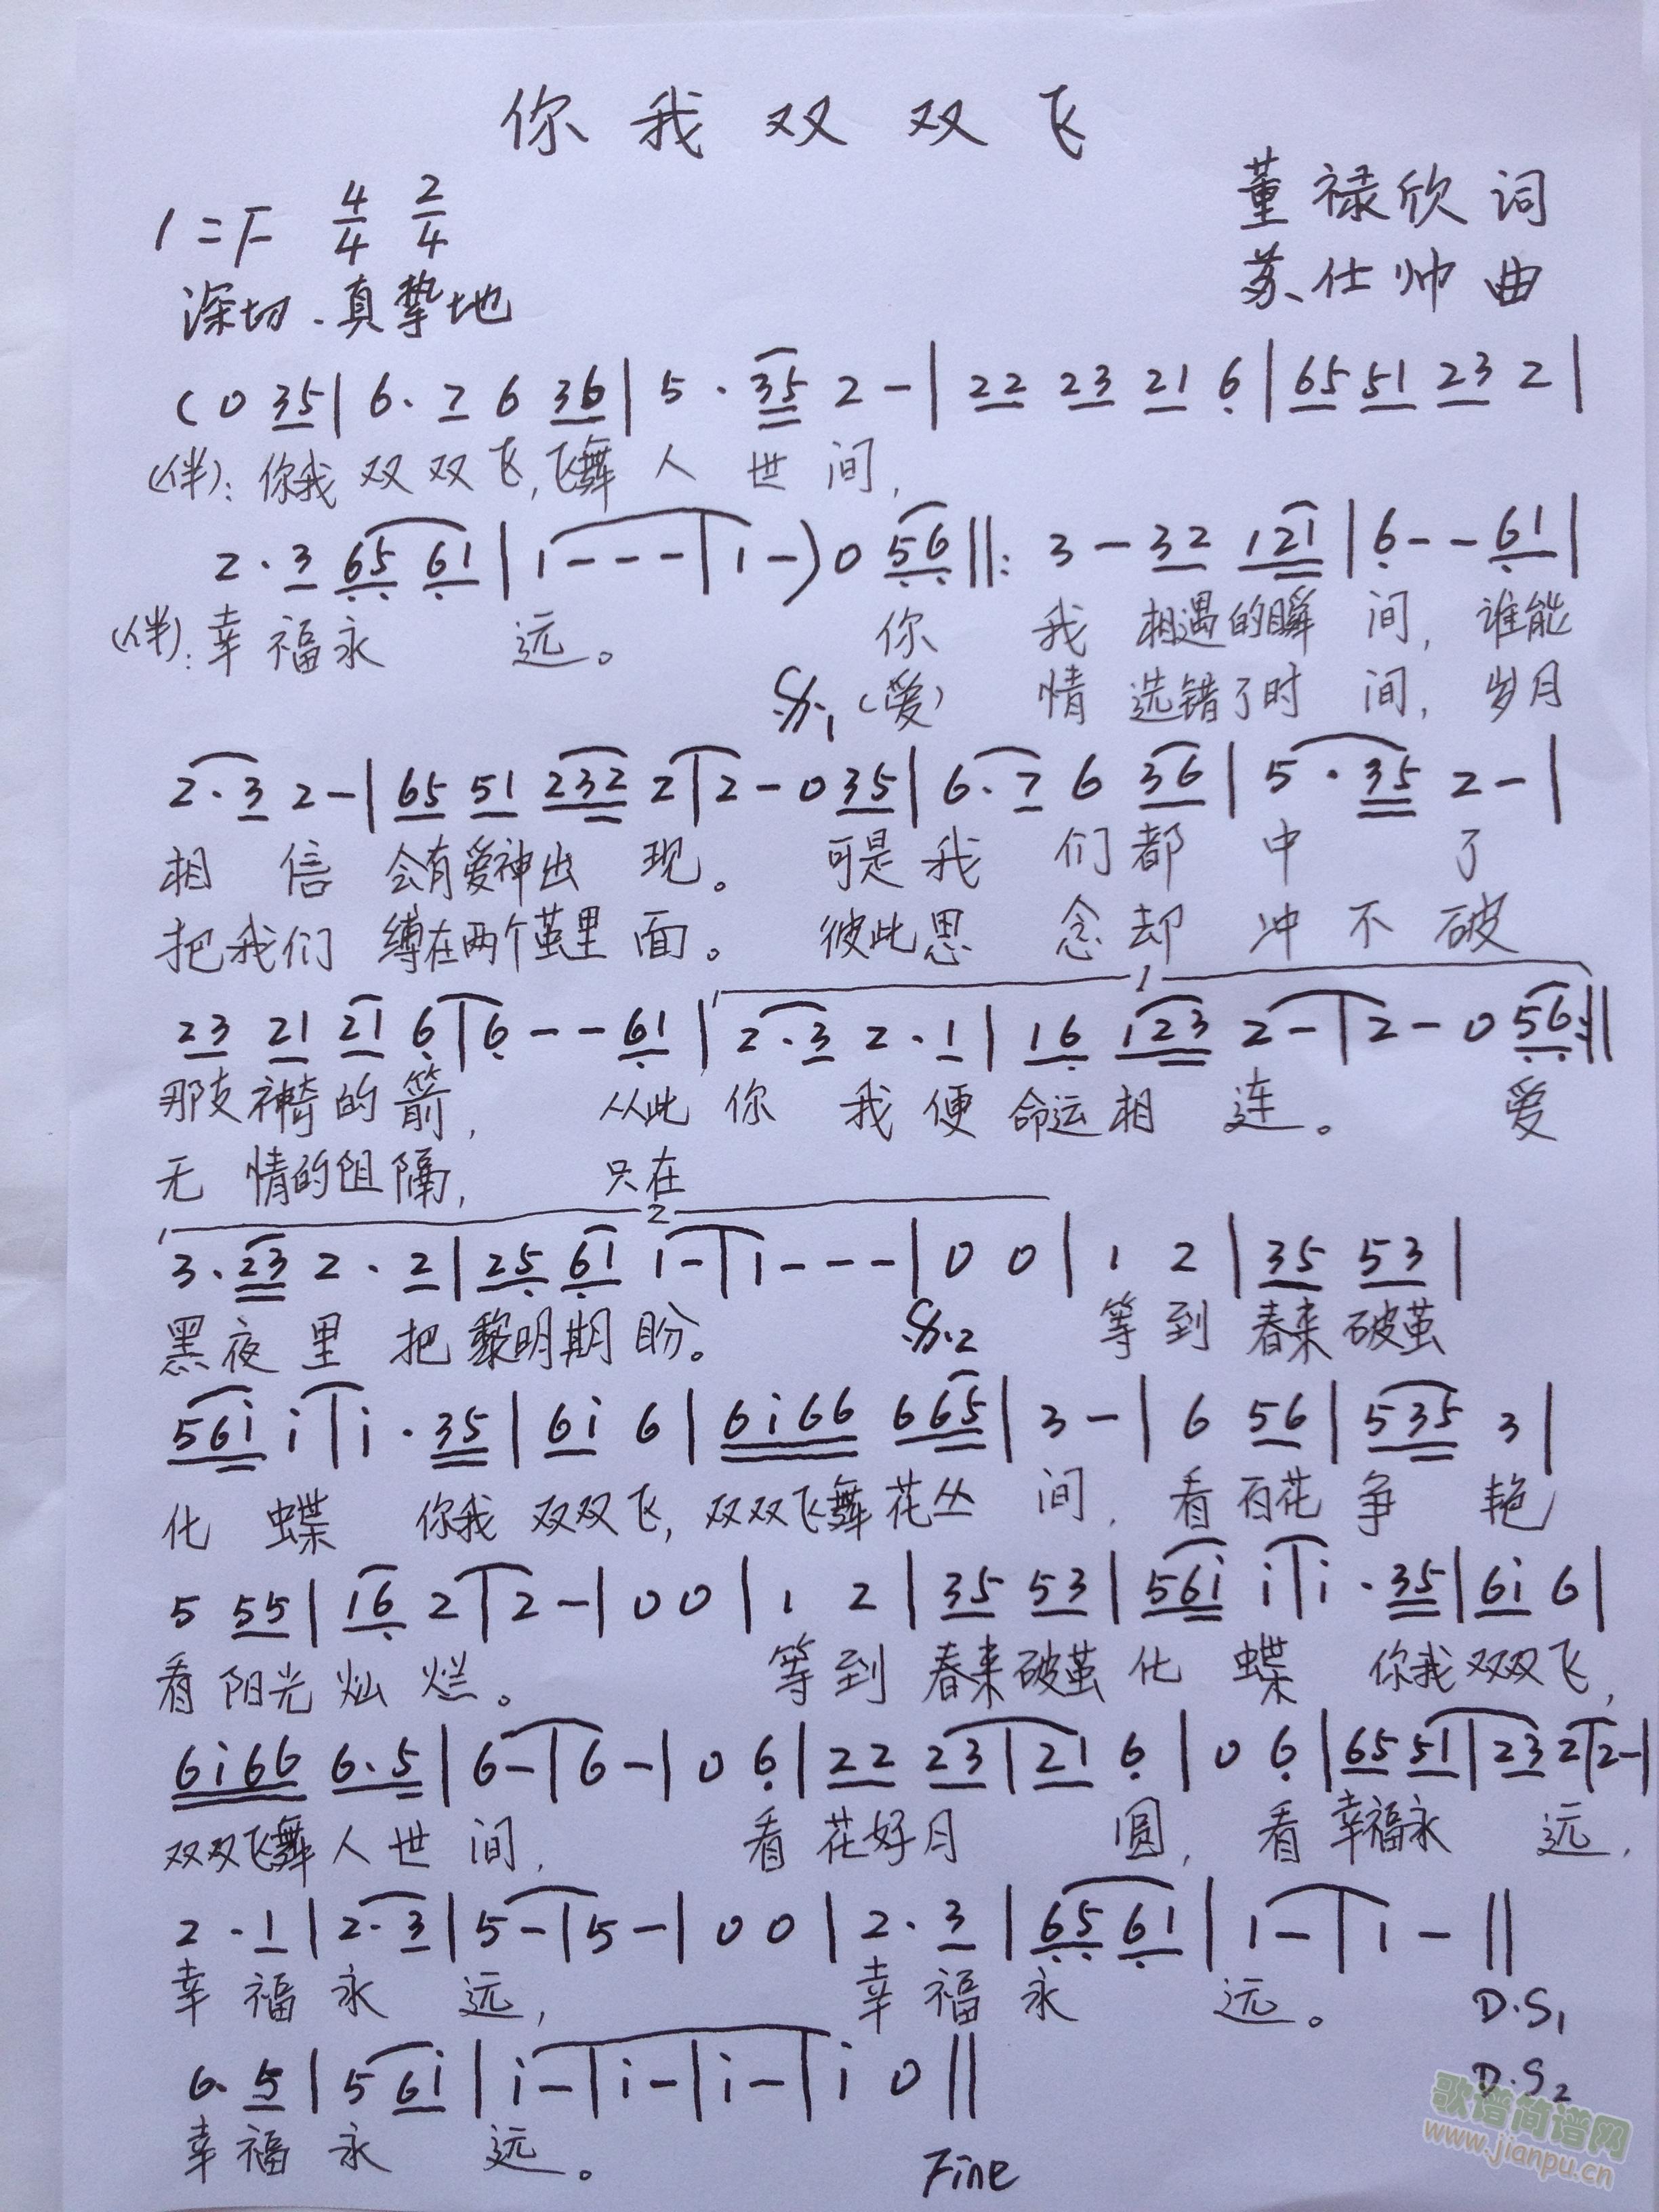 你我双双飞
董禄欣 词
1=F 4/4 2/4
苏仕帅 曲
深切.真挚地
(0 35|6.7 6 36|5.35 2-|22 23 21 6|65 51 23 2|
(伴):你我双双飞,飞舞人世间,
2.3 65 61|1---|1-)0 56||:3-32 121|6--61|
(伴):幸福永远。 你我相遇的瞬间,谁能
1(爱)情选错了时间,岁月
2.3 2-|65 51 232 2|2-0 35|6.7 6 36|5.35 2-|
相信会有爱神出现。 可是我们都中了
把我们缚在两个茧里面。 彼此思念却冲不破
1
23 21 21 6|6--61|2.3 2.1|16 123 2-|2-0 56:||
那支神奇的箭, 从此你我便命运相连。 爱
无情的阻隔, 只在
2
3.23 2.2|25 61 1-|1---|0 0|1 2|35 53|
黑夜里把黎明期盼。 2 等到春来破茧
56i i|i.35|6i 6|6i66 665|3-|6 56|535 3|
化蝶 你我双双飞,双双飞舞花丛间,看百花争艳
5 55|16 2|2-|00|1 2|35 53|56i i|i.35|6i 6|
看阳光灿烂。 等到春来破茧化蝶 你我双双飞,
6i66 6.5|6-|6-|0 6|22 23|21 6|0 6|65 51|23 2|2-|
双双飞舞人世间, 看花好月圆,看幸福永远,
2.1|2.3|5-|5-|00|2.3|65 61|1-|1-||
幸福永远, 幸福永远。 D.S1
6.5|56i|i-|i-|i-|i 0|| D.S2
幸福永远。 Fine
歌谱简谱网
www.jianpu.cn